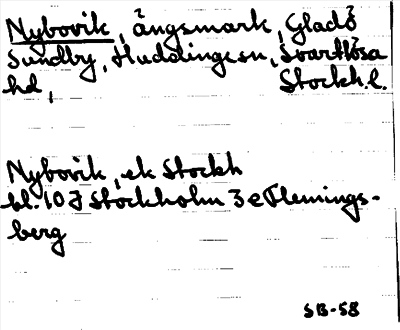 Nybovik, ängsmark, Gladö
Sundby, Huddinge sn, Svartlösa
hd, Stockh.l.
Nybovik, ek Stockh
bl. 10J Stockholm 3e Flemings-
berg
SB-58